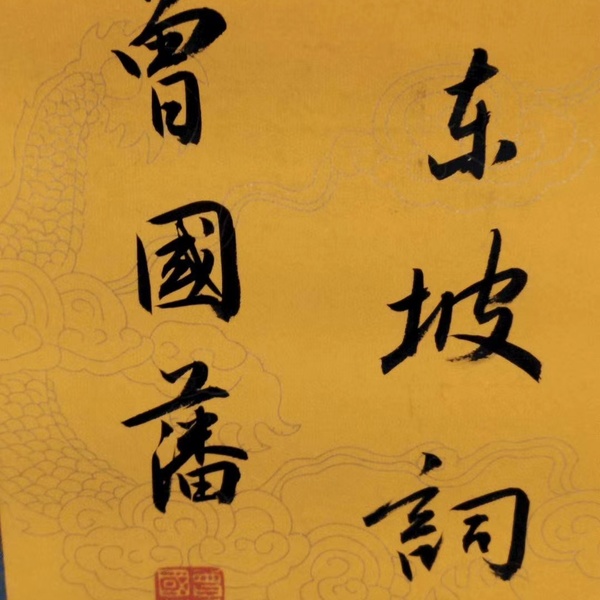 东坡詞
曾國藩